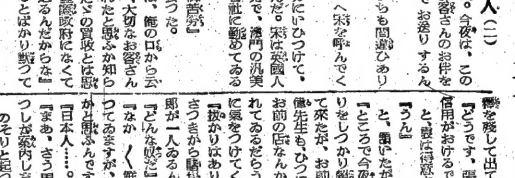 人(二)
。今夜は、この
客さんのお伴を
お送りするん
らも間違ひあり
へ宋を呼んでく
にいひつけて、
だ。宋は英國人
で、澳門の汎美
社に勤めてゐる
つた。
、俺の口から云
大切なお客さん
たと思ふか知ら
の買收とは思
政府になくて
るんだからな』
とばかり默つて
を殘して出て
『どうです。
信用がおけるで
と、は得意
『うん』
と、いたが
『ところで今夜
りをしつかり
て來たが、お前
先生も、ひつ
れてゐるだらう
お前の店なんか
に氣をつけてく
『拔かりはあり
さつきから
郎が一人ゐるん
『どんな奴だ』
『なか〳〵
つてゐますが、
かと思ふんです
『日本人……。
『まあ、さう思
つしが案内しま
のそりと起つ